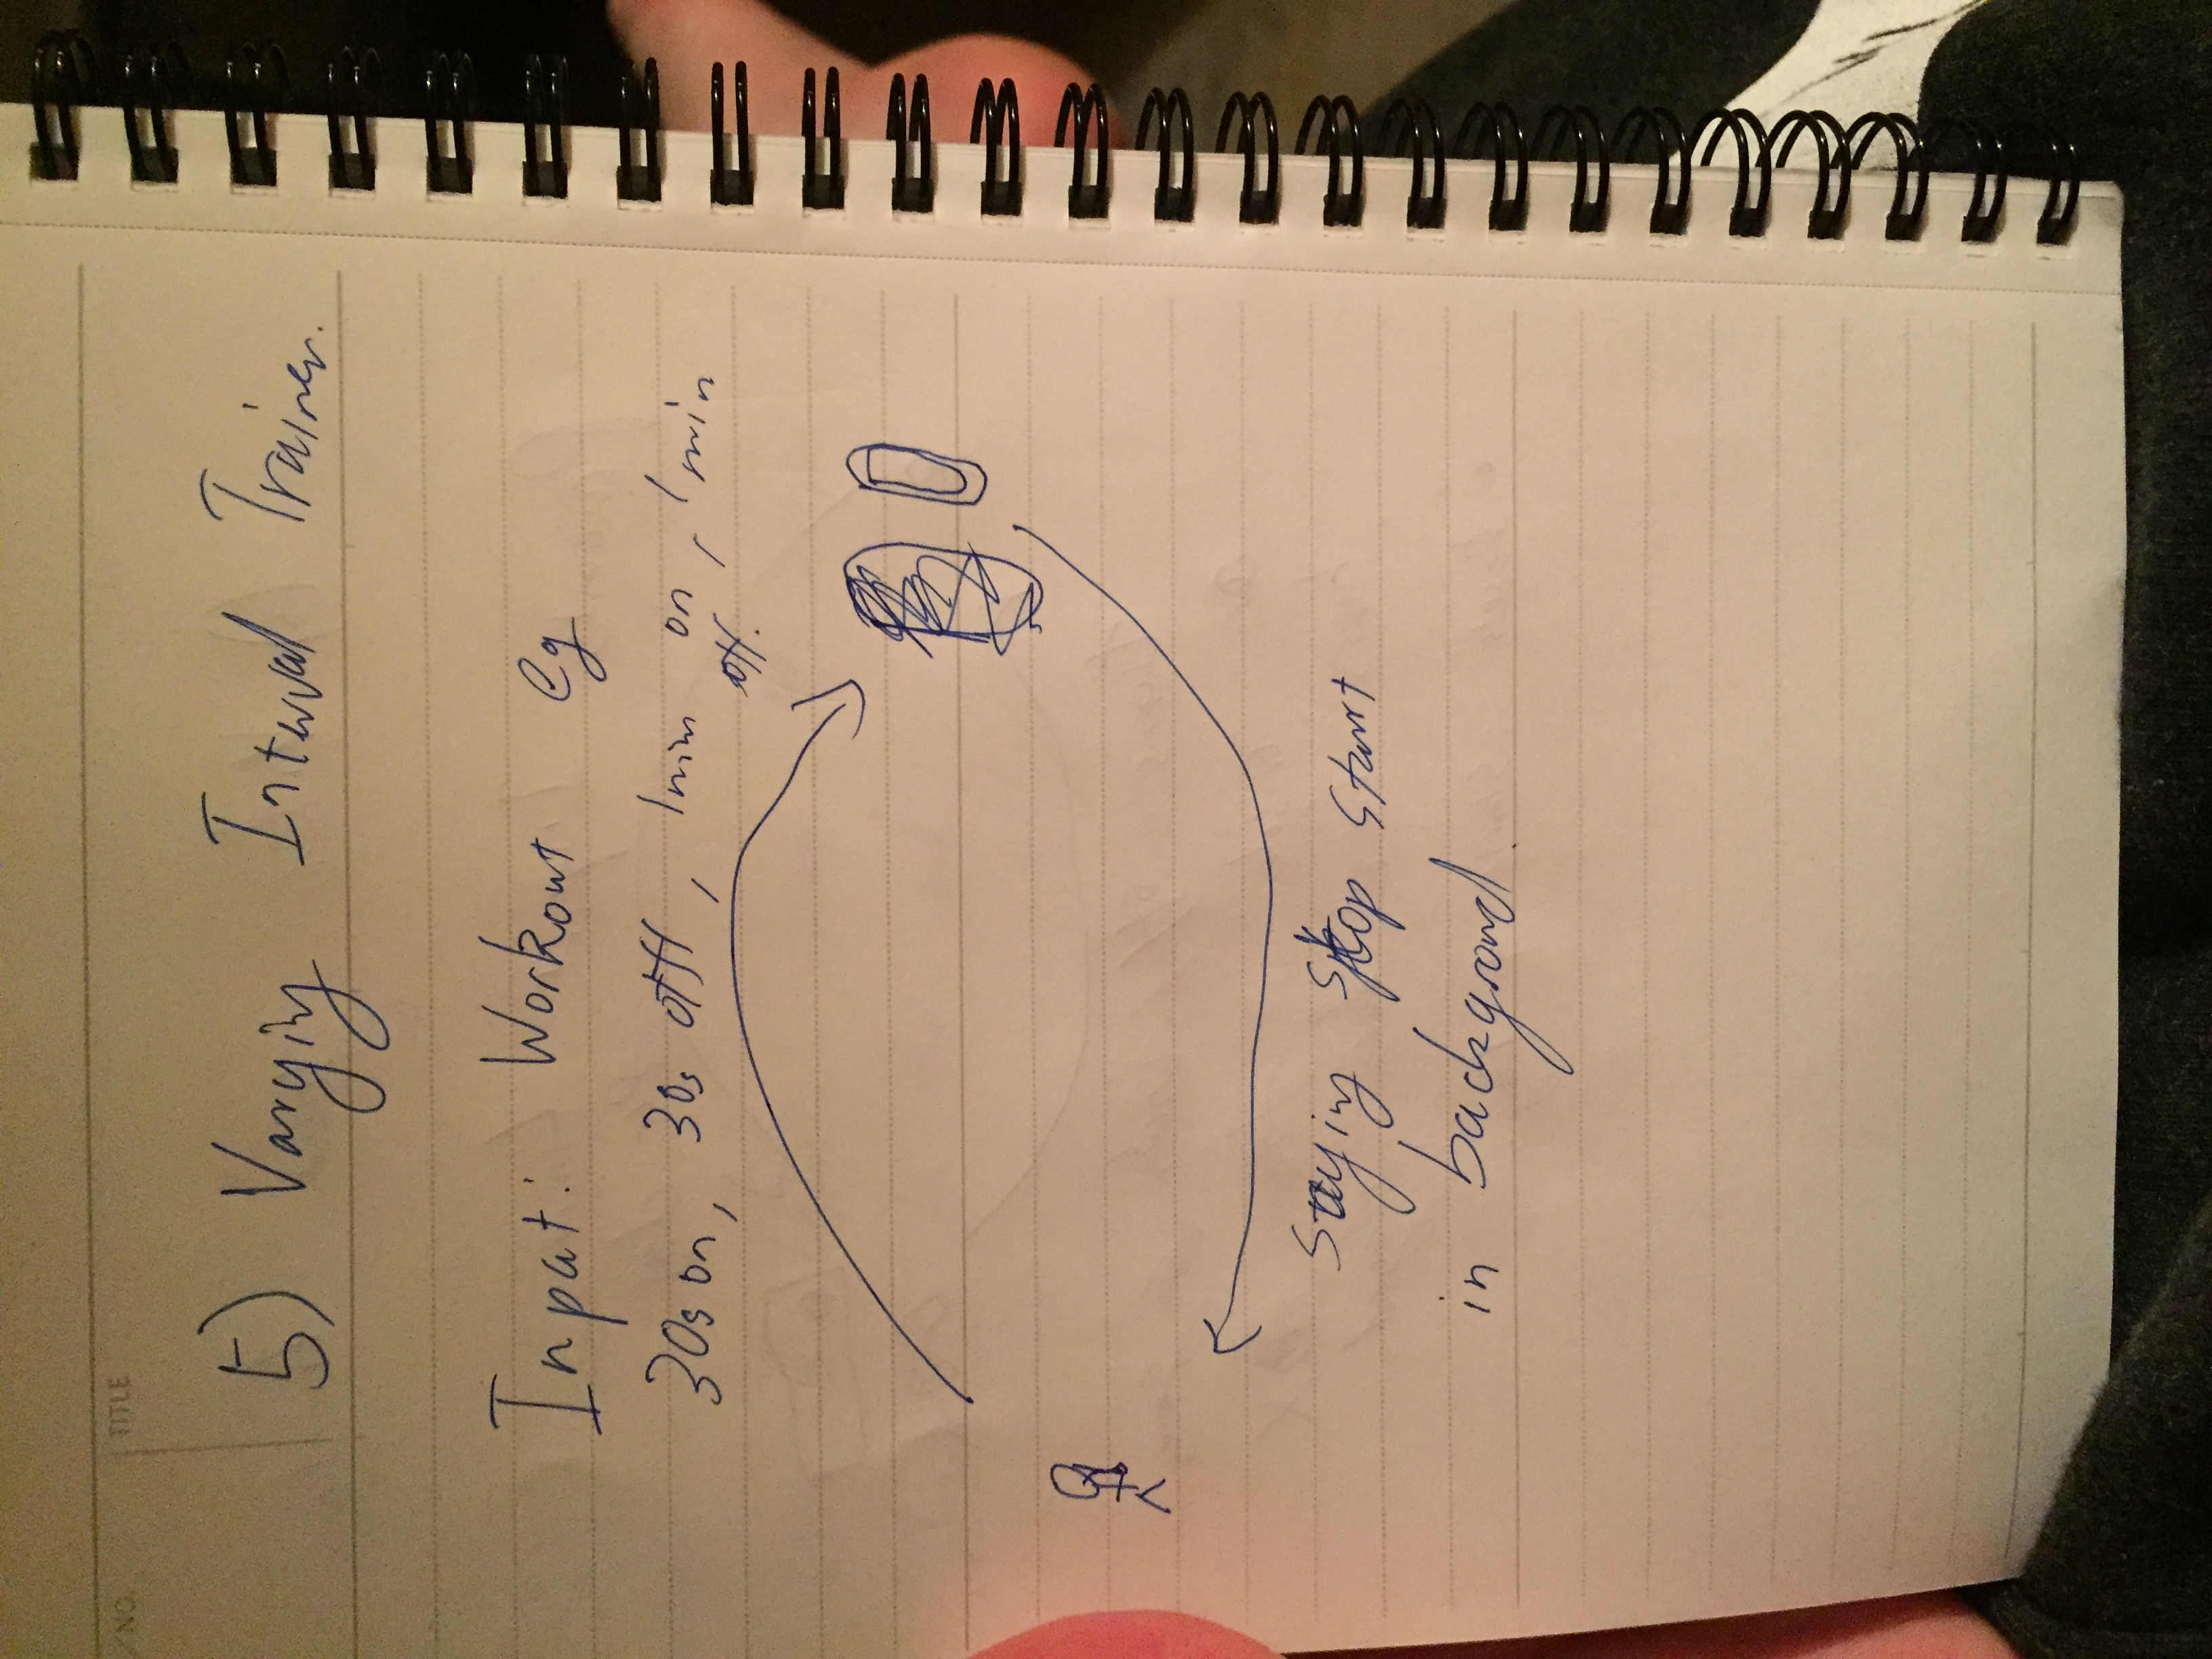 NO. TITLE
5) Varying Interval Trainer.
Input: Workout eg
30s on, 30s off, 1min on, 1min
off.
Saying stop start
in background.